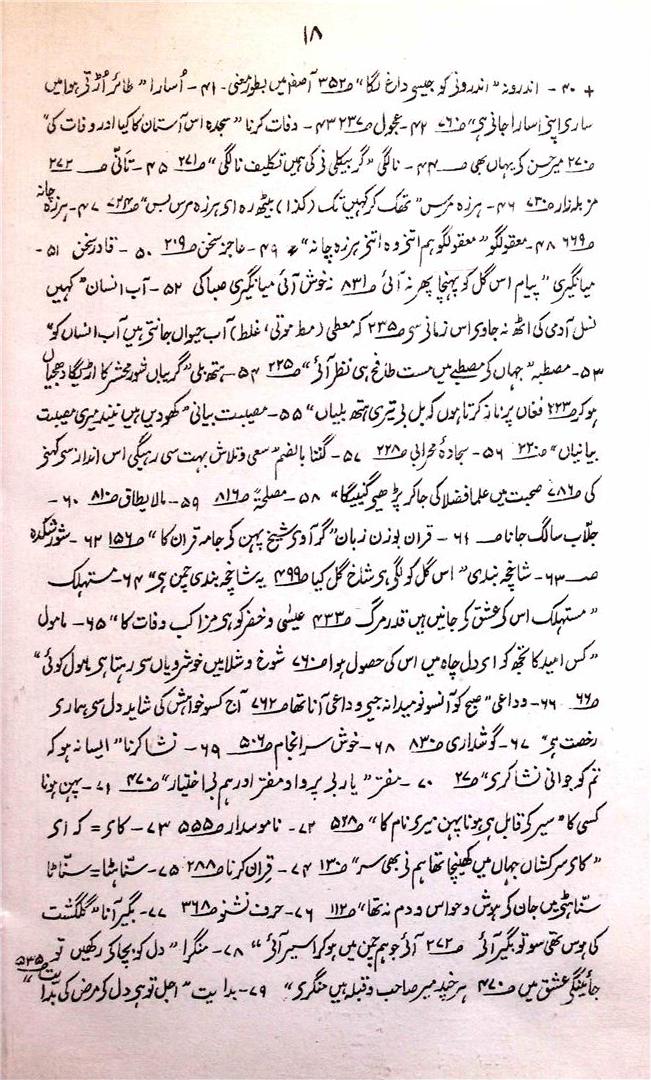 ۱۸
+ ۴۰ - اندرونہ "اندرونی کو جیسی داغ لگا" ص۳۵۲ آصفہ میں بطور معنی - ۴۱ - اُسارا "طائر اُڑتی ہوا میں
ساری اپنی اسارا جاتی ہی" ص۷۶۰ ۴۲ - عجول ص۲۳۷ ۴۳ - دفات کرنا "سجدہ اس آستان کا کیا اور وفات کی"
ص۲۷۰ میر حسن کی یہاں بھی ص ۴۴ - نالگی "گر بیکلی نی کی ہیں تکلیف نالگی" ص۲۷۱ ۴۵ - تانّی ص ۲۷۲
مزبلہ زار ص۷۳۰ ۴۶ - ہرزہ مرس "تھک کر کہیں تک (کذا) بیٹھ رہ ای ہرزہ مرس بس" ص۷۲۴ ۴۷ - ہرزہ چانہ
ص۶۶۹ ۴۸ - معقولگو "معقولگو ہم اتنی وہ اتنی ہرزہ چانہ" ۴۹ - عاجز سخن ص۲۰۹ ۵۰ - قادر سخن ۵۱ -
میانگیری "پیام اس گل کو پہنچا پھر نہ آئی ص۸۳۱ نہ خوش آئی میانگیری صبا کی ۵۲ - آب انسان "کہیں
نسل آدمی کی اٹھ نہ جاوی اس زمانی سی ص۲۳۵ کہ معطی (مط موتی، غلط) آب حیواں جانتی ہیں آب انساں کو"
۵۳ - مصطبہ "جہاں کی مصطبے میں مست طافح ہی نظر آئی" ص۲۲۵ ۵۴ - ہتھ بلی "گریباں شور محشر کا اڑیگا دھجیاں
ہو کر ص۲۲۳ فغاں پر ناز کرتا ہوں کہ بل بی تیری ہتھ بلیاں" ۵۵ - مصیبت بیانی "کھو دیں ہیں نیند میری مصیبت
بیانیاں" ص۲۲۰ ۵۶ - سجادۂ محرابی ص۲۲۸ ۵۷ - گٹنا بالضم "سعی و تلاش بہت سی رہیگی اس انداز سی کہنی
کی ص۷۸۶ صحبت میں علما فضلا کی جا کر پڑھیی گنییگا" ۵۸ - مصلحۃً ص۸۱۶ ۵۹ - مالایطاق ص۸۱۰ ۶۰ -
جلّاب سالگ جانا ص ۶۱ - قران بوزن زبان "گر آوی شیخ پہن کی جامہ قران کا" ص۱۵۶ ۶۲ - شور نشکدہ
ص ۶۳ - شانچہ بندی "اس گل کو لگی ہی شاخ گل کیا ص۴۹۹ یہ شانچہ بندی چمن ہی" ۶۴ - مستہلک
"مستہلک اس کی عشق کی جانیں ہیں قدر مرگ ص۴۳۳ عیسٰی و خضر کو ہی مزا کب وفات کا" ۶۵ - مامول
"کس امید کا تجھ کو ای دل چاہ میں اس کی حصول ہوا ص۷۶۰ شوخ و شلا میں خوشرویاں سی رہتا ہی مامول کوئی"
ص۶۶ ۶۶ - وداعی "صبح کو آنسو نومیدانہ جیسی وداعی آتا تھا ص۷۶۲ آج کسو خواہش کی شاید دل سی ہماری
رخصت ہی" ۶۷ - گوشداری ص۸۳۰ ۶۸ - خوش سرانجام ص۵۰۶ ۶۹ - نشا کرنا "ایسا نہ ہو کہ
تم کو جوانی نشا کری" ص۲۷ ۷۰ - مفرّ "یار بی پروا و مفتر اور ہم بی اختیار" ص۴۷۰ ۷۱ - پہن ہونا
کسی کا "سیر کی قابل ہی ہونا پہن میری نام کا" ص۵۲۸ ۷۲ - ناموسدار ص۵۵۵ ۷۳ - کای = کہ ای
"کای سرکشاں جہاں میں کھینچا تھا ہم نی بھی سر" ص۱۳۰ ۷۴ - قِران کرنا ص۲۸۸ ۷۵ - سنّاہٹا = سنّاٹا
سنّاہٹی میں جان کی ہوش و حواس و دم نہ تھا" ص۱۱۲ ۷۶ - حرف نشنو ص۳۶۸ ۷۷ - بگیر آنا "گلگشت
کی ہوس تھی سو تو بگیر آئی ص۲۷۲ آئی جو ہم چمن میں ہو کر اسیر آئی" ۷۸ - منگرا "دل کو بچا کی رکھیں تو
جائینگی عشق میں ص۴۷۰ ہر چند میر صاحب و قبلہ ہیں منگری" ۷۹ - بدایت "اجل تو ہی دل کو مرض کی بدایت" ص۵۳۵